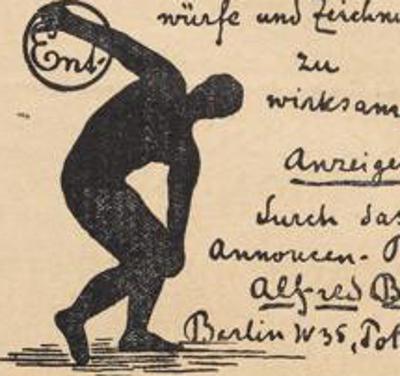 Ent-
würfe und Zeichnu
zu
wirksam
Anzeige
durch das
Annoncen-
Alfred B
Berlin W 35, Pot